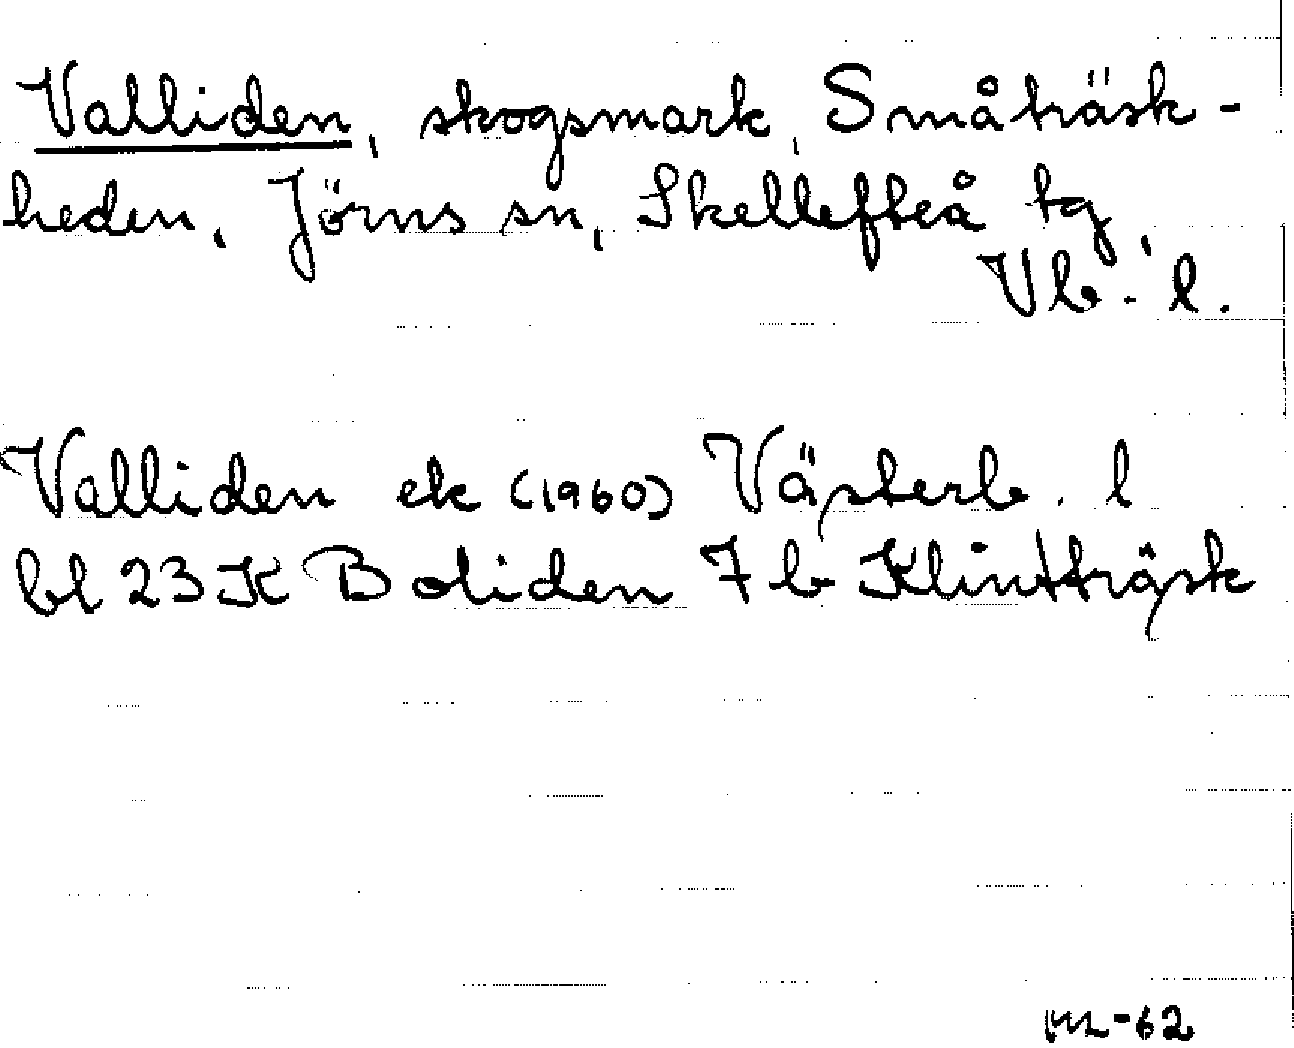 Valliden, skogsmark, Småträsk-
heden, Jörns sn, Skellefteå tg,
Vb. l.
Valliden ek (1960) Västerb. l
bl 23 K Boliden 7 b Klintträsk
-62